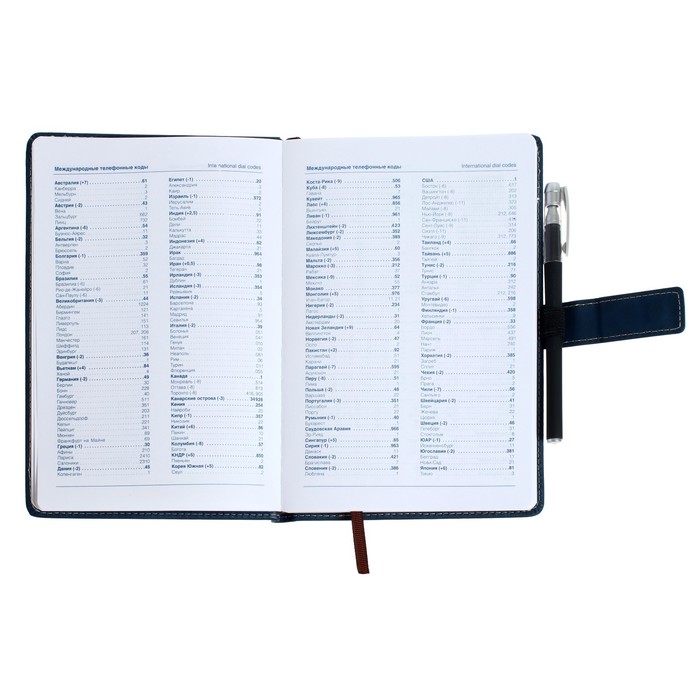 Международные телефонные коды
International dial codes
Австралия (+7) 61
Канберра 2
Мельбурн 3
Сидней 2
Австрия (-2) 43
Вена
Зальцбург 662
Линц 732
Аргентина (-6) 54
Буэнос-Айрес
Бельгия (-2) 32
Антверпен 3
Брюссель 2
Болгария (-1) 359
Варна 52
Пловдив 32
София 2
Бразилия 55
Бразилиа (-6) 61
Рио-де-Жанейро (-6) 21
Сан-Паулу (-6) 11
Великобритания (-3) 44
Абердин 1224
Бирмингем 121
Глазго 141
Ливерпуль 151
Лидс
Лондон
Манчестер 161
Шеффилд 114
Эдинбург 131
Венгрия (-2) 36
Будапешт 1
Вьетнам (+4) 84
Ханой 4
Германия (-2) 49
Берлин 30
Бонн 228
Гамбург 40
Ганновер 511
Дрезден 351
Дуйсбург 203
Дюссельдорф 211
Кельн 221
Лейпциг 341
Мюнхен 89
Франкфурт на Майне 69
Греция (-1) 30
Афины 210
Лариса 2410
Салоники 2310
Дания (-2) 45
Копенгаген
Египет (-1) 20
Александрия 3
Каир 2
Израиль (-1) 972
Иерусалим 2
Тель-Авив 3
Индия (+2,5) 91
Бомбей
Дели 11
Калькутта 33
Мадрас 44
Индонезия (+4) 62
Джакарта 21
Ирак 964
Иран (+0,5) 98
Тегеран 21
Ирландия (-3) 353
Дублин 1
Исландия (-3) 354
Рейкьявик
Испания (-2) 34
Барселона
Картахена
Мадрид
Севилья
Италия (-2) 39
Болонья 051
Венеция 041
Генуя 010
Милан 02
Неаполь 081
Рим 06
Турин 011
Флоренция 055
Канада 1
Монреаль (-8) 514
Оттава (-8) 613
Торонто (-8)
Канарские острова (-3)
Кения 254
Найроби 20
Кипр (-1) 357
Никосия
Китай (+5) 86
Пекин 10
Шанхай
Колумбия (-8) 57
Богота 1
КНДР (+5) 850
Пхеньян 2
Корея Южная (+5) 82
Сеул 2
Международные телефонные коды
International dial codes
Коста-Рика (-9) 506
Куба (-8) 53
Гавана 7
Кувейт 965
Лаос (+4) 856
Вьентьян 21
Ливан (-1) 961
Бейрут 1
Лихтенштейн (-2) 423
Люксембург (-2) 352
Македония (-2) 389
Скопье 2
Малайзия (+5) 60
Куала-Лумпур 3
Мальта (-2) 356
Марокко (-3) 212
Рабат 37
Мексика (-9) 52
Мехико 55
Монако 377
Монголия (+5) 976
Улан-Батор
Нигерия (-2) 234
Лагос 1
Нидерланды (-2) 31
Амстердам 20
Новая Зеландия (+9) 64
Веллингтон 4
Норвегия (-2) 47
Осло
Пакистан (+2) 92
Исламабад 51
Карачи 21
Парагвай (-7) 595
Асунсьон 21
Перу (-8) 51
Лима 1
Польша (-2) 48
Варшава 22
Португалия (-3) 351
Лиссабон 21
Порту 22
Румыния (-1) 40
Бухарест 21
Саудовская Аравия 966
Эр-Рияд 1
Сингапур (+5) 65
Сирия (-1) 963
Дамаск 11
Словакия (-2) 421
Братислава
Словения (-2) 386
Любляна
США 1
Бостон (-8) 617
Вашингтон (-8) 202
Детройт (-8) 313
Лос-Анджелес (-11) 323
Майами (-8) 305
Нью-Йорк (-8)
Сан-Франциско (-11)
Сент-Луис (-9) 314
Сиэтл (-11) 206
Чикаго (-9)
Таиланд (+4) 66
Бангкок 2
Тайвань (+5) 886
Тайпей 2
Тунис (-2) 216
Тунис 71
Турция (-1) 90
Анкара 312
Анталья 242
Стамбул
Уругвай (-6) 598
Монтевидео 2
Финляндия (-1) 358
Хельсинки 9
Франция (-2) 33
Бордо
Лион
Марсель
Ницца
Париж 1
Хорватия (-2) 385
Загреб 1
Сплит 21
Чехия (-2) 420
Брно
Прага 2
Чили (-7) 56
Сантьяго 2
Швейцария (-2) 41
Берн 31
Женева 22
Цюрих
Швеция (-2) 46
Гетеборг 31
Стокгольм 8
ЮАР (-1) 27
Йоханнесбург 11
Югославия (-2) 381
Белград 11
Нови-Сад 21
Япония (+6) 81
Токио 3